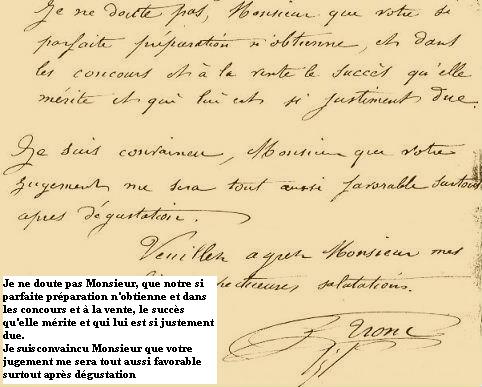 Je ne doute pas, Monsieur que votre si
parfaite préparation n'obtienne, et dans
les concours et à la vente le succès qu'elle
mérite et qui lui est si justement due.
Je suis convaincu, Monsieur que votre
jugement me sera tout aussi favorable surtout
apres dégustation.
Veuillez agréer Monsieur mes
salutations.
Je ne doute pas Monsieur, que notre si
parfaite préparation n'obtienne et dans
les concours et à la vente, le succès
qu'elle mérite et qui lui est si justement
due.
Je suisconvaincu Monsieur que votre
jugement me sera tout aussi favorable
surtout après dégustation